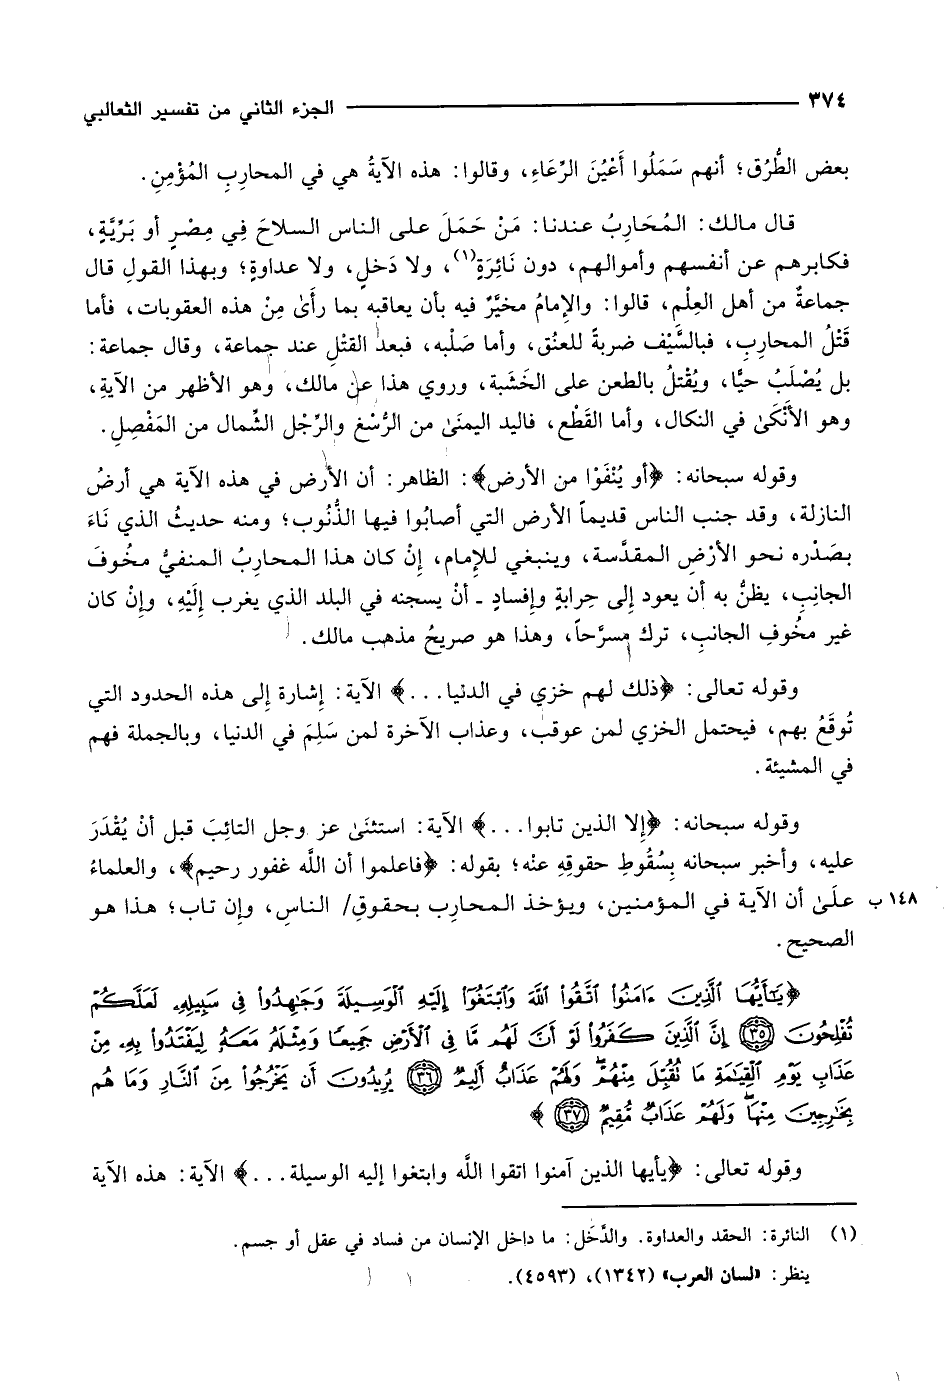 ٣٧٤ الجزء الثاني من تفسير الثعالبي
بعض الطُّرُق؛ أنهم سَمَلُوا أَعْيُنَ الرِّعَاءِ، وقالوا: هذه الآيةُ هي في المحاربِ المُؤْمِنِ.
قال مالك: المُحَارِبُ عندنا: مَنْ حَمَلَ على الناس السلاحَ فِي مِصْرٍ أو بَرِّيَّةٍ،
فكابرهم عن أنفسهم وأموالهم، دون نَائِرَةٍ(١)، ولا دَخلٍ، ولا عداوةٍ؛ وبهذا القولِ قال
جماعةٌ من أهل العِلْمِ، قالوا: والإِمامُ مخيَّرٌ فيه بأن يعاقبه بما رأَىٰ مِنْ هذه العقوبات، فأما
قَتْلُ المحاربِ، فبالسَّيْف ضربةً للعنُق، وأما صَلْبه، فبعد القتْلِ عند جماعة، وقال جماعة:
بل يُصْلَبُ حيًّا، ويُقْتلُ بالطعن على الخَشَبة، وروي هذا عن مالك، وهو الأظهر من الآيةِ،
وهو الأَنْكَىٰ في النكال، وأما القَطْع، فاليد اليمنَىٰ من الرُّسْغِ والرِّجْل الشِّمال من المَفْصِلِ.
وقوله سبحانه: ﴿أو يُنْفَوْا من الأرض﴾: الظاهر: أن الأرض في هذه الآية هي أرضُ
النازلة، وقد جنب الناس قديماً الأرض التي أصابُوا فيها الذُّنُوب؛ ومنه حديثُ الذي نَاءَ
بصَدْره نحو الأرْضِ المقدَّسة، وينبغي للإِمام، إنْ كان هذا المحاربُ المنفيُّ مخُوفَ
الجانِبِ، يظنُّ به أن يعود إلى حِرابةٍ وإفسادٍ ـ أنْ يسجنه في البلد الذي يغرب إِلَيْهِ، وإنْ كان
غير مخُوفِ الجانبِ، ترك مسرَّحاً، وهذا هو صريحُ مذهب مالك.
وقوله تعالى: ﴿ذلك لهم خزي في الدنيا...﴾ الآية: إشارة إلى هذه الحدود التي
تُوقَعُ بهم، فيحتمل الخزي لمن عوقب، وعذاب الآخرة لمن سَلِمَ في الدنيا، وبالجملة فهم
في المشيئة.
وقوله سبحانه: ﴿إلا الذين تابوا...﴾ الآية: استثنَىٰ عز وجل التائِبَ قبل أنْ يُقْدَرَ
عليه، وأخبر سبحانه بِسُقُوطِ حقوقِهِ عنْه؛ بقوله: ﴿فاعلموا أن اللَّه غفور رحيم﴾، والعلماءُ
علَىٰ أن الآية في المؤمنين، ويؤخذ المحارب بحقوقِ/ الناسِ، وإن تاب؛ هذا هو ١٤٨ ب
الصحيح.
﴿يَٰٓأَيُّهَا ٱلَّذِينَ ءَامَنُوا۟ ٱتَّقُوا۟ ٱللَّهَ وَٱبْتَغُوٓا۟ إِلَيْهِ ٱلْوَسِيلَةَ وَجَٰهِدُوا۟ فِى سَبِيلِهِۦ لَعَلَّكُمْ
تُفْلِحُونَ ﴿٣٥﴾ إِنَّ ٱلَّذِينَ كَفَرُوا۟ لَوْ أَنَّ لَهُم مَّا فِى ٱلْأَرْضِ جَمِيعًا وَمِثْلَهُۥ مَعَهُۥ لِيَفْتَدُوا۟ بِهِۦ مِنْ
عَذَابِ يَوْمِ ٱلْقِيَٰمَةِ مَا تُقُبِّلَ مِنْهُمْ ۖ وَلَهُمْ عَذَابٌ أَلِيمٌ ﴿٣٦﴾ يُرِيدُونَ أَن يَخْرُجُوا۟ مِنَ ٱلنَّارِ وَمَا هُم
بِخَٰرِجِينَ مِنْهَا ۖ وَلَهُمْ عَذَابٌ مُّقِيمٌ ﴿٣٧﴾﴾
وقوله تعالى: ﴿يأيها الذين آمنوا اتقوا اللَّه وابتغوا إليه الوسيلة...﴾ الآية: هذه الآية
(١) النائرة: الحقد والعداوة. والدَّخَل: ما داخل الإنسان من فساد في عقل أو جسم.
ينظر: «لسان العرب» (١٣٤٢)، (٤٥٩٣).